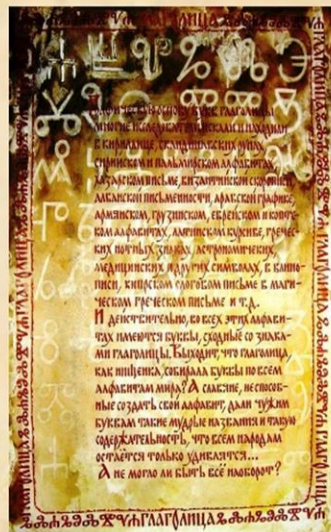 ГЛАГОЛИЦА
основу букв глаголицы
многие исследователи искали и находили
в кириллице, скандинавских рунах
сирийском и пальмирском алфавитах,
хазарском письме, византийской скорописи,
албанской письменности, арабской графике,
армянском, грузинском, еврейском и копт-
ком алфавитах, латинском курсиве, гречес-
ких нотных знаках, астрономических,
медицинских и других символах, в клино-
писи, кипрском слоговом письме в маги-
ческом греческом письме и т.д.
И действительно, во всех этих алфави-
тах имеются буквы, сходные со знака-
ми глаголицы. Выходит, что глаголица,
как нищенка, собирала буквы по всем
алфавитам мира? А славяне, неспособ-
ные создать свой алфавит, дали чужим
буквам такие мудрые названия и такую
содержательность, что всем народам
остаётся только удивляться...
А не могло ли быть всё наоборот?
ГЛАГОЛИЦА